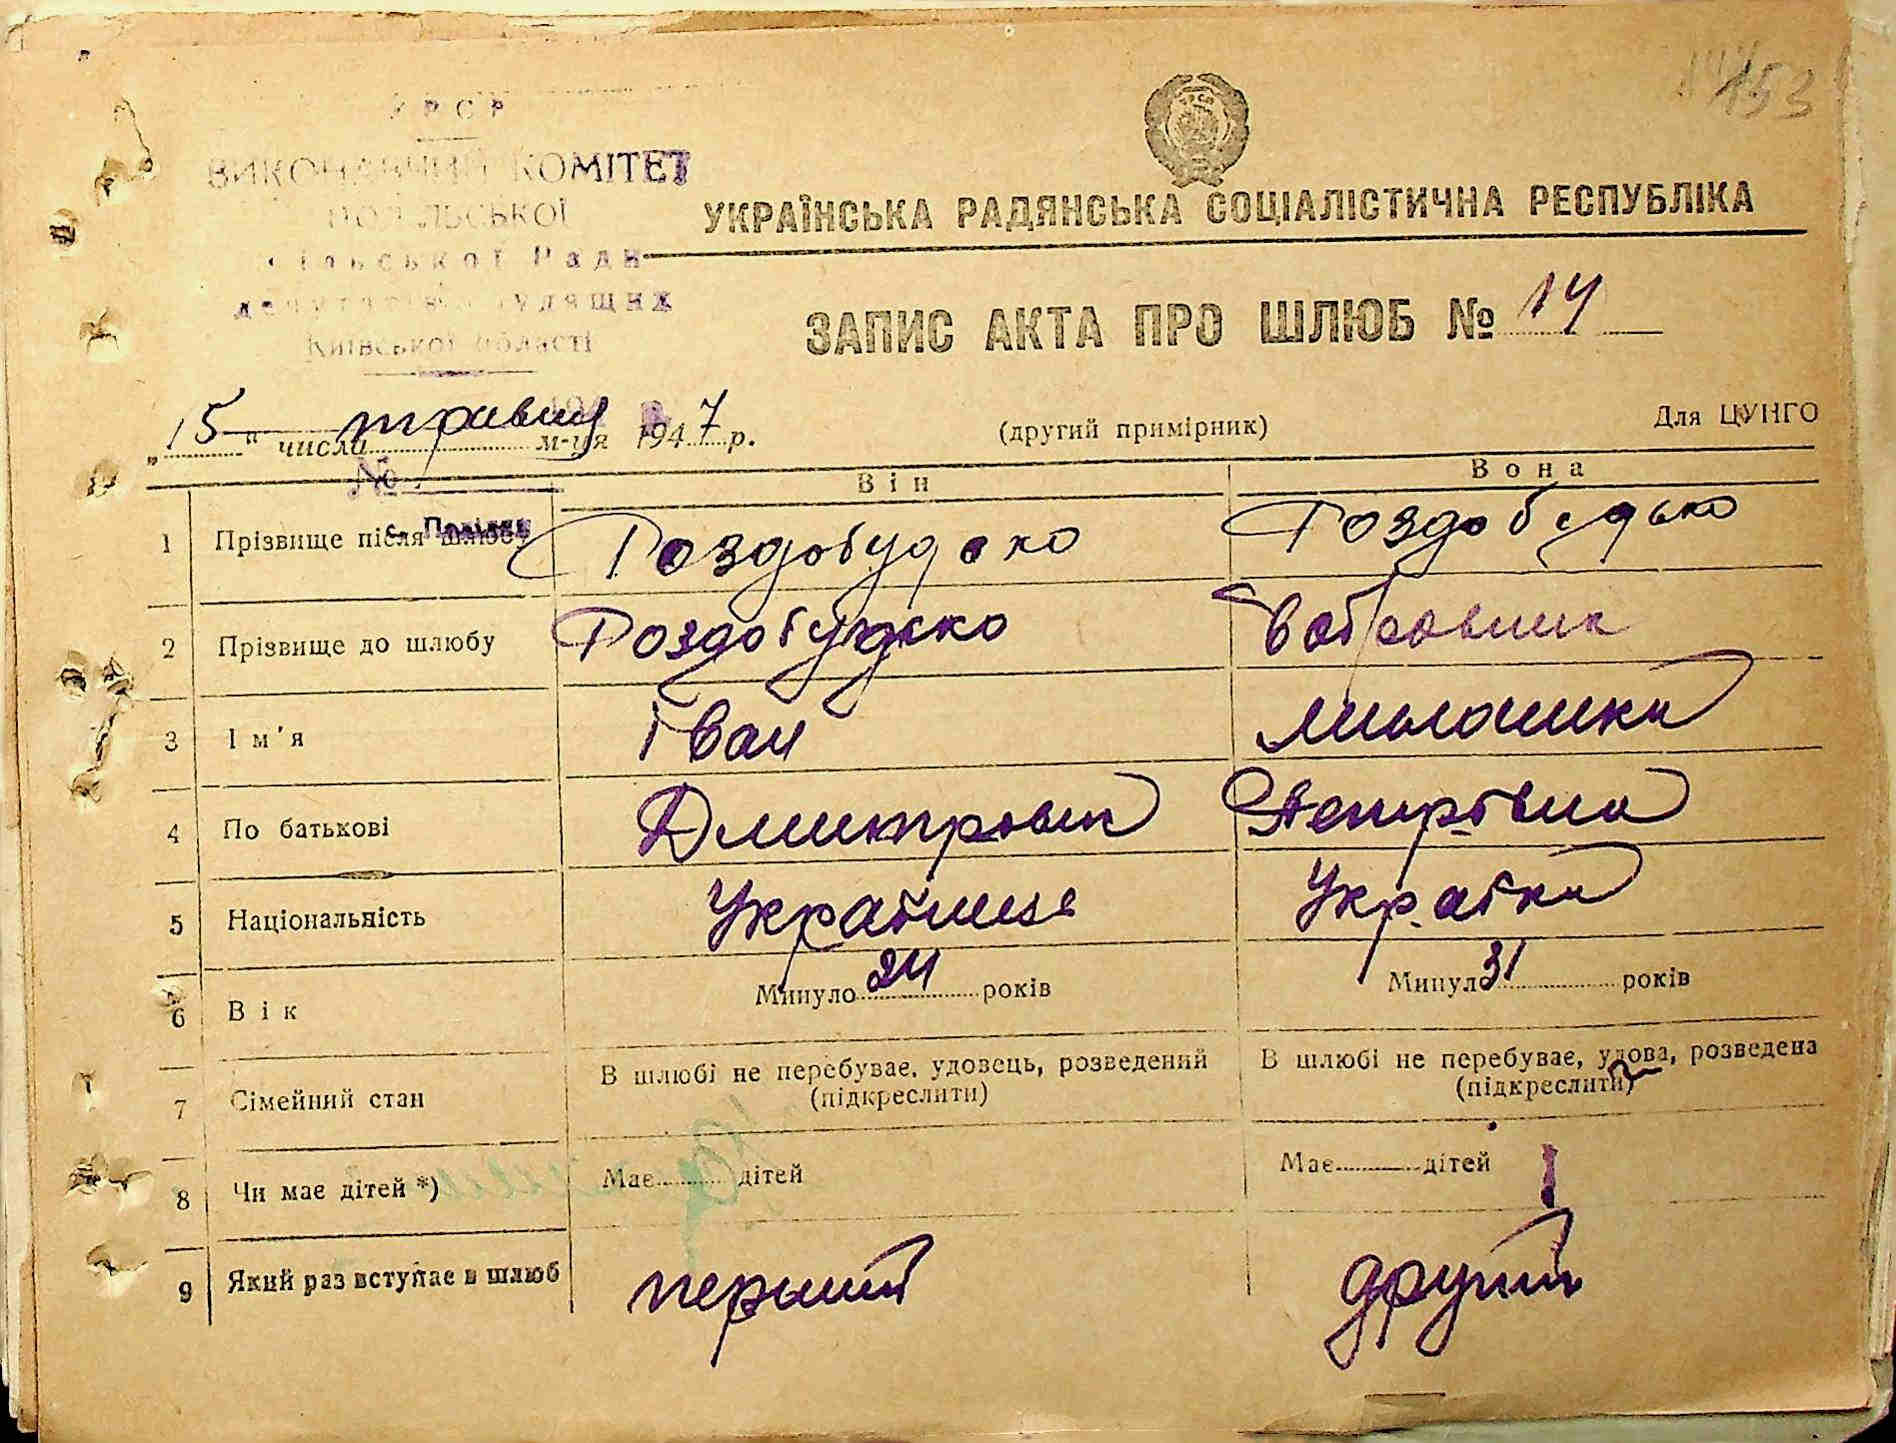 УРСР
ВИКОНАВЧИЙ КОМІТЕТ
ПОДІЛЬСЬКОЇ
Сільської Ради
депутатів трудящих
Київської області
153
УКРАЇНСЬКА РАДЯНСЬКА СОЦІАЛІСТИЧНА РЕСПУБЛІКА
ЗАПИС АКТА ПРО ШЛЮБ № 14
„15“ числа травня м-ця 1947 р.
(другий примірник)
Для ЦУНГО
№
Він Вона
1 Прізвище після шлюбу Роздобудько Роздобудько
2 Прізвище до шлюбу Роздобудько Бобровник
3 Ім'я Іван
4 По батькові Дмитрович Петрівна
5 Національність Українець Українка
6 Вік Минуло 24 років Минуло 31 років
7 Сімейний стан В шлюбі не перебуває, удовець, розведений (підкреслити) В шлюбі не перебуває, удова, розведена (підкреслити)
8 Чи має дітей *) Має дітей Має дітей 1
9 Який раз вступає в шлюб перший другий